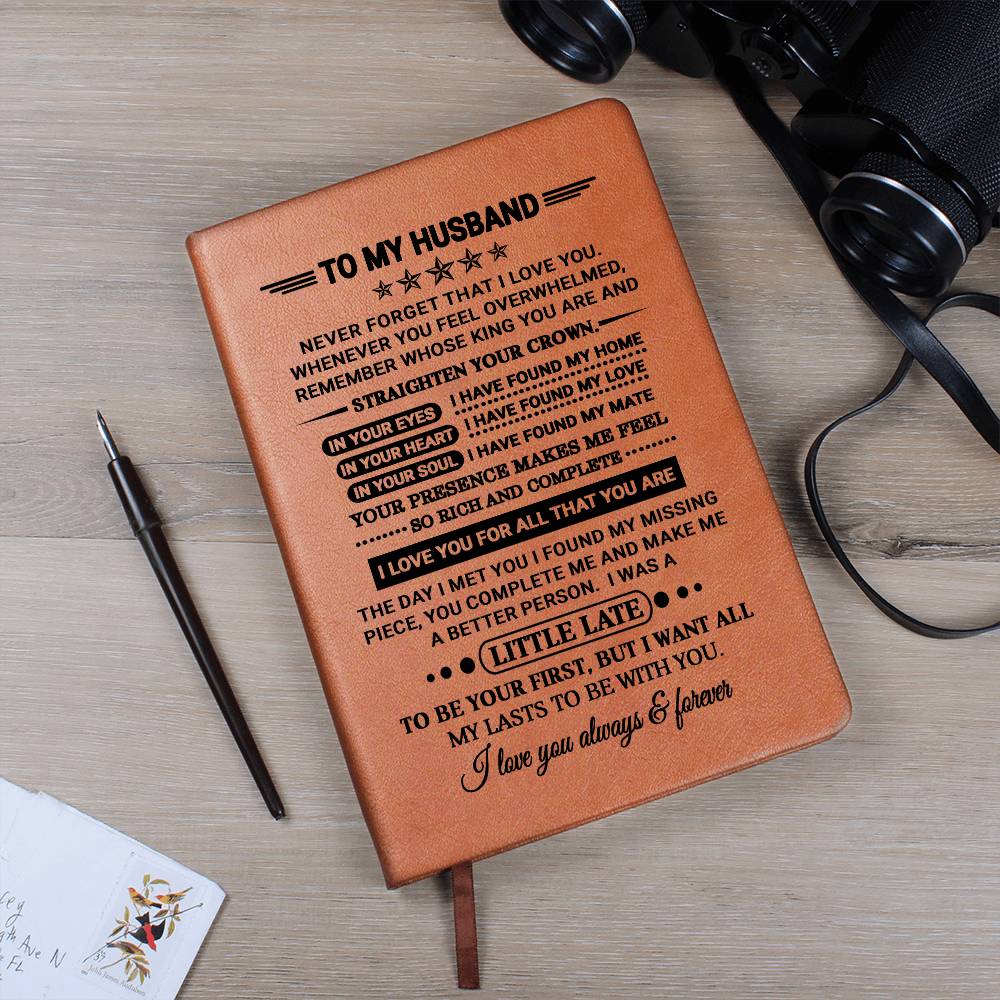 TO MY HUSBAND
NEVER FORGET THAT I LOVE YOU.
WHENEVER YOU FEEL OVERWHELMED,
REMEMBER WHOSE KING YOU ARE AND
STRAIGHTEN YOUR CROWN.
IN YOUR EYES I HAVE FOUND MY HOME
IN YOUR HEART I HAVE FOUND MY LOVE
IN YOUR SOUL I HAVE FOUND MY MATE
YOUR PRESENCE MAKES ME FEEL
SO RICH AND COMPLETE
I LOVE YOU FOR ALL THAT YOU ARE
THE DAY I MET YOU I FOUND MY MISSING
PIECE, YOU COMPLETE ME AND MAKE ME
A BETTER PERSON. I WAS A
LITTLE LATE
TO BE YOUR FIRST, BUT I WANT ALL
MY LASTS TO BE WITH YOU.
I love you always & forever
Ave N
FL
37
John James Audubon